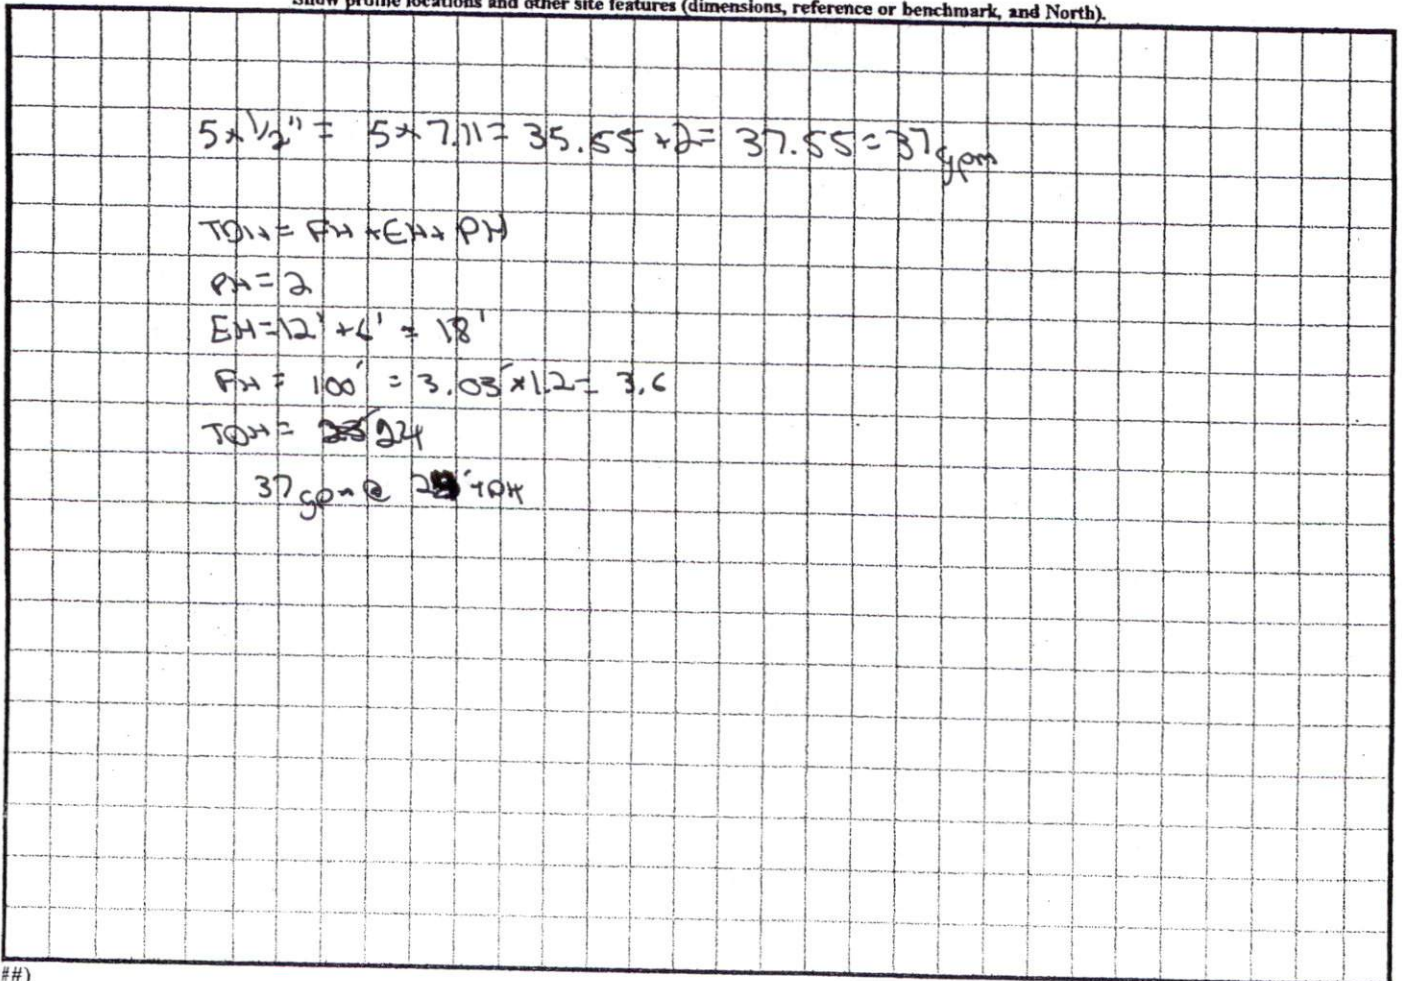 Show profile locations and other site features (dimensions, reference or benchmark, and North).
5 * 1/2" = 5 * 7.11 = 35.55 + 2 = 37.55 = 37 gpm
TDH = FH + EH + PH
PH = 2
EH = 12' + 6' = 18'
FH = 100' = 3.03' * 1.2 = 3.6
TDH = 24
37 gpm @ TDH
##)